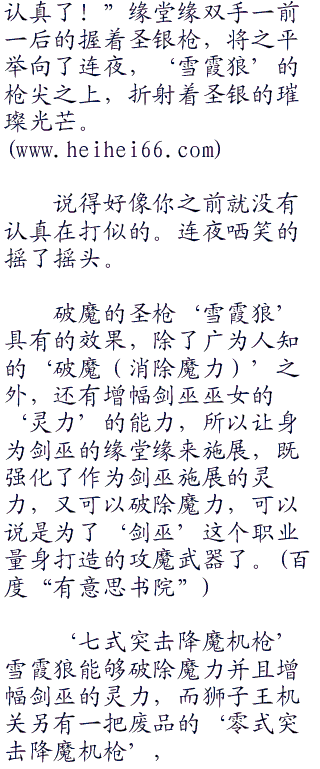 认真了！”缘堂缘双手一前
一后的握着圣银枪，将之平
举向了连夜，‘雪霞狼’的
枪尖之上，折射着圣银的璀
璨光芒。
(www.heihei66.com)
说得好像你之前就没有
认真在打似的。连夜哂笑的
摇了摇头。
破魔的圣枪‘雪霞狼’
具有的效果，除了广为人知
的‘破魔（消除魔力）’之
外，还有增幅剑巫巫女的
‘灵力’的能力，所以让身
为剑巫的缘堂缘来施展，既
强化了作为剑巫施展的灵
力，又可以破除魔力，可以
说是为了‘剑巫’这个职业
量身打造的攻魔武器了。(百
度“有意思书院”)
‘七式突击降魔机枪’
雪霞狼能够破除魔力并且增
幅剑巫的灵力，而狮子王机
关另有一把废品的‘零式突
击降魔机枪’，